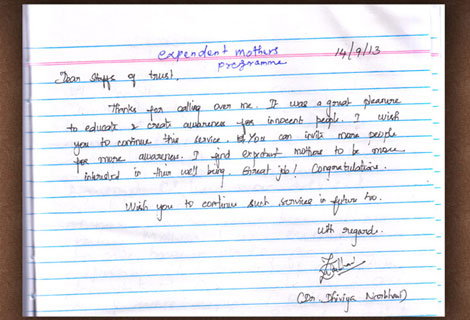 expendent mothers
programme
14/9/13
Dear Staffs of trust,
Thanks for calling over me. It was a great pleasure
to educate & create awareness for innocent people. I wish
you to continue this service. You can invite more people
for more awareness. I find expectant mothers to be more
interested in their well being. Great job! Congratulations.
Wish you to continue such services in future too.
with regards.
(Dr. Dhivya